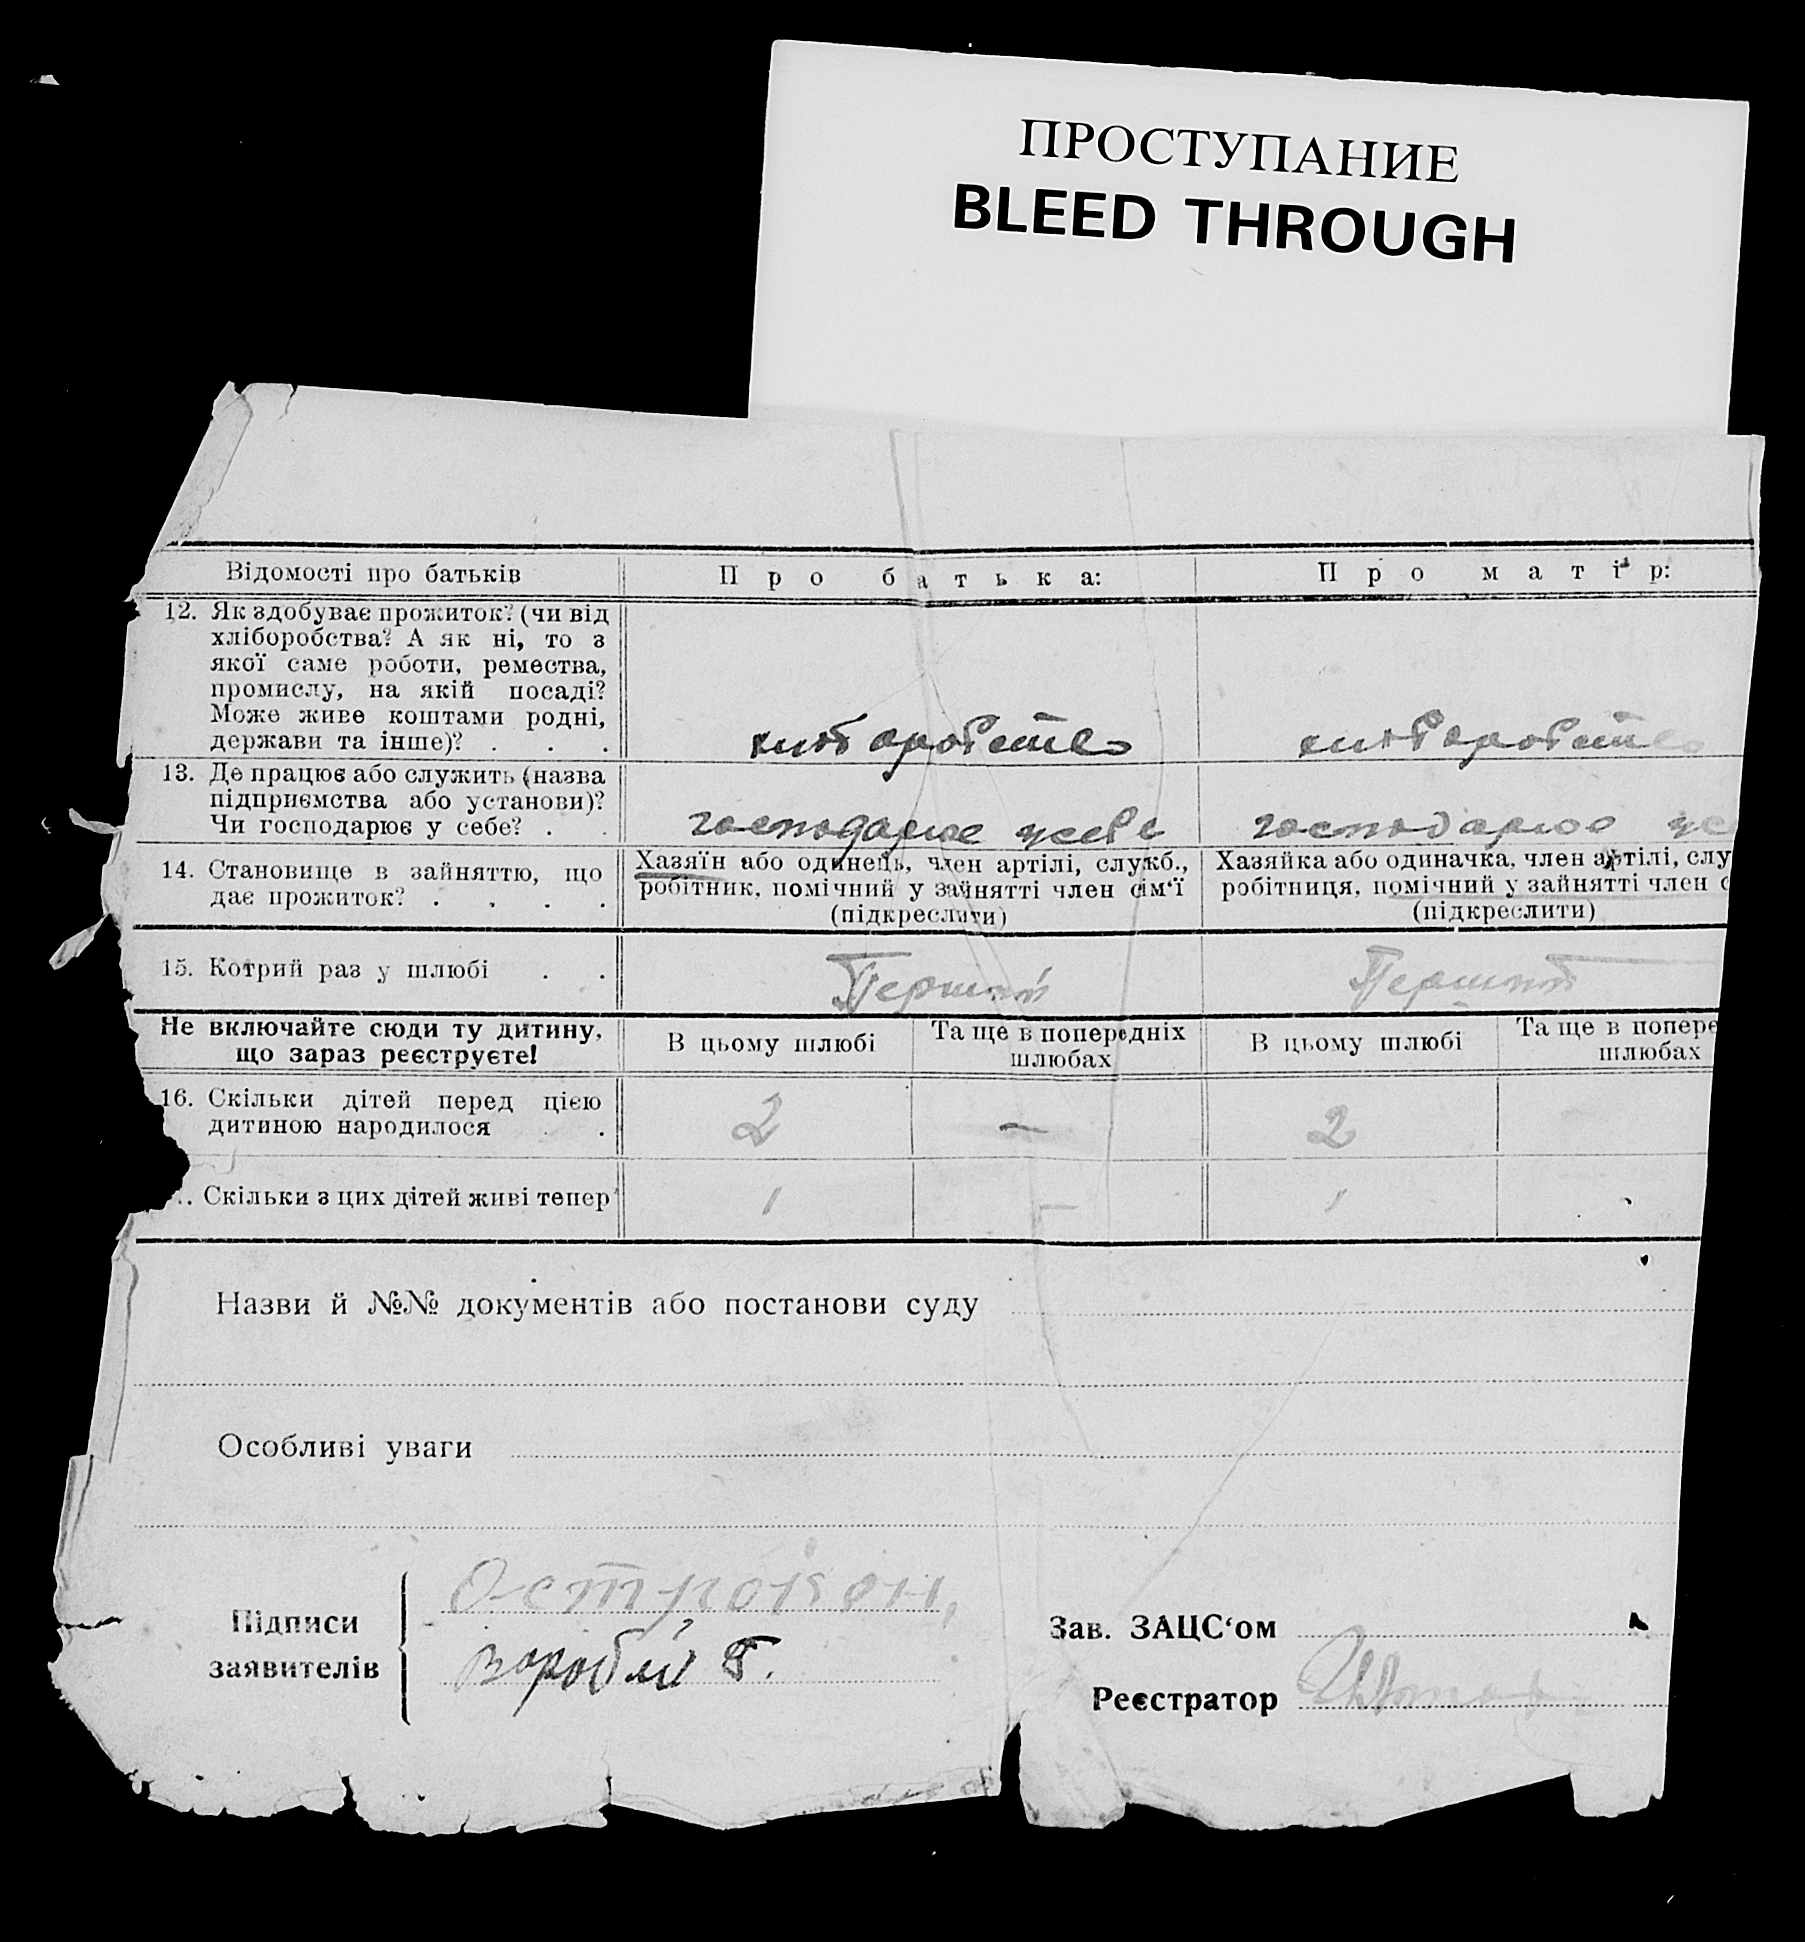 ПРОСТУПАНИЕ
BLEED THROUGH
Відомості про батьків
Про батька:
Про матір:
12. Як здобуває прожиток? (чи від
хліборобства? А як ні, то з
якої саме роботи, ремества,
промислу, на якій посаді?
Може живе коштами родні,
держави та інше)? . . .
хліборобство
хліборобство
13. Де працює або служить (назва
підприємства або установи)?
Чи господарює у себе? . .
господарює у себе
господарює
14. Становище в зайняттю, що
дає прожиток? . . . .
Хазяїн або одинець, член артілі, служб.,
робітник, помічний у зайнятті член сім'ї
(підкреслити)
Хазяйка або одиначка, член артілі, слу
робітниця, помічний у зайнятті член с
(підкреслити)
15. Котрий раз у шлюбі . .
Перший
Перший
Не включайте сюди ту дитину,
що зараз реєструєте!
В цьому шлюбі
Та ще в попередніх
шлюбах
В цьому шлюбі
Та ще в попере
шлюбах
16. Скільки дітей перед цією
дитиною народилося .
2
—
2
.. Скільки з цих дітей живі тепер
1
—
1
Назви й №№ документів або постанови суду
Особливі уваги
Підписи
заявителів
Воробій
Зав. ЗАЦС'ом
Реєстратор